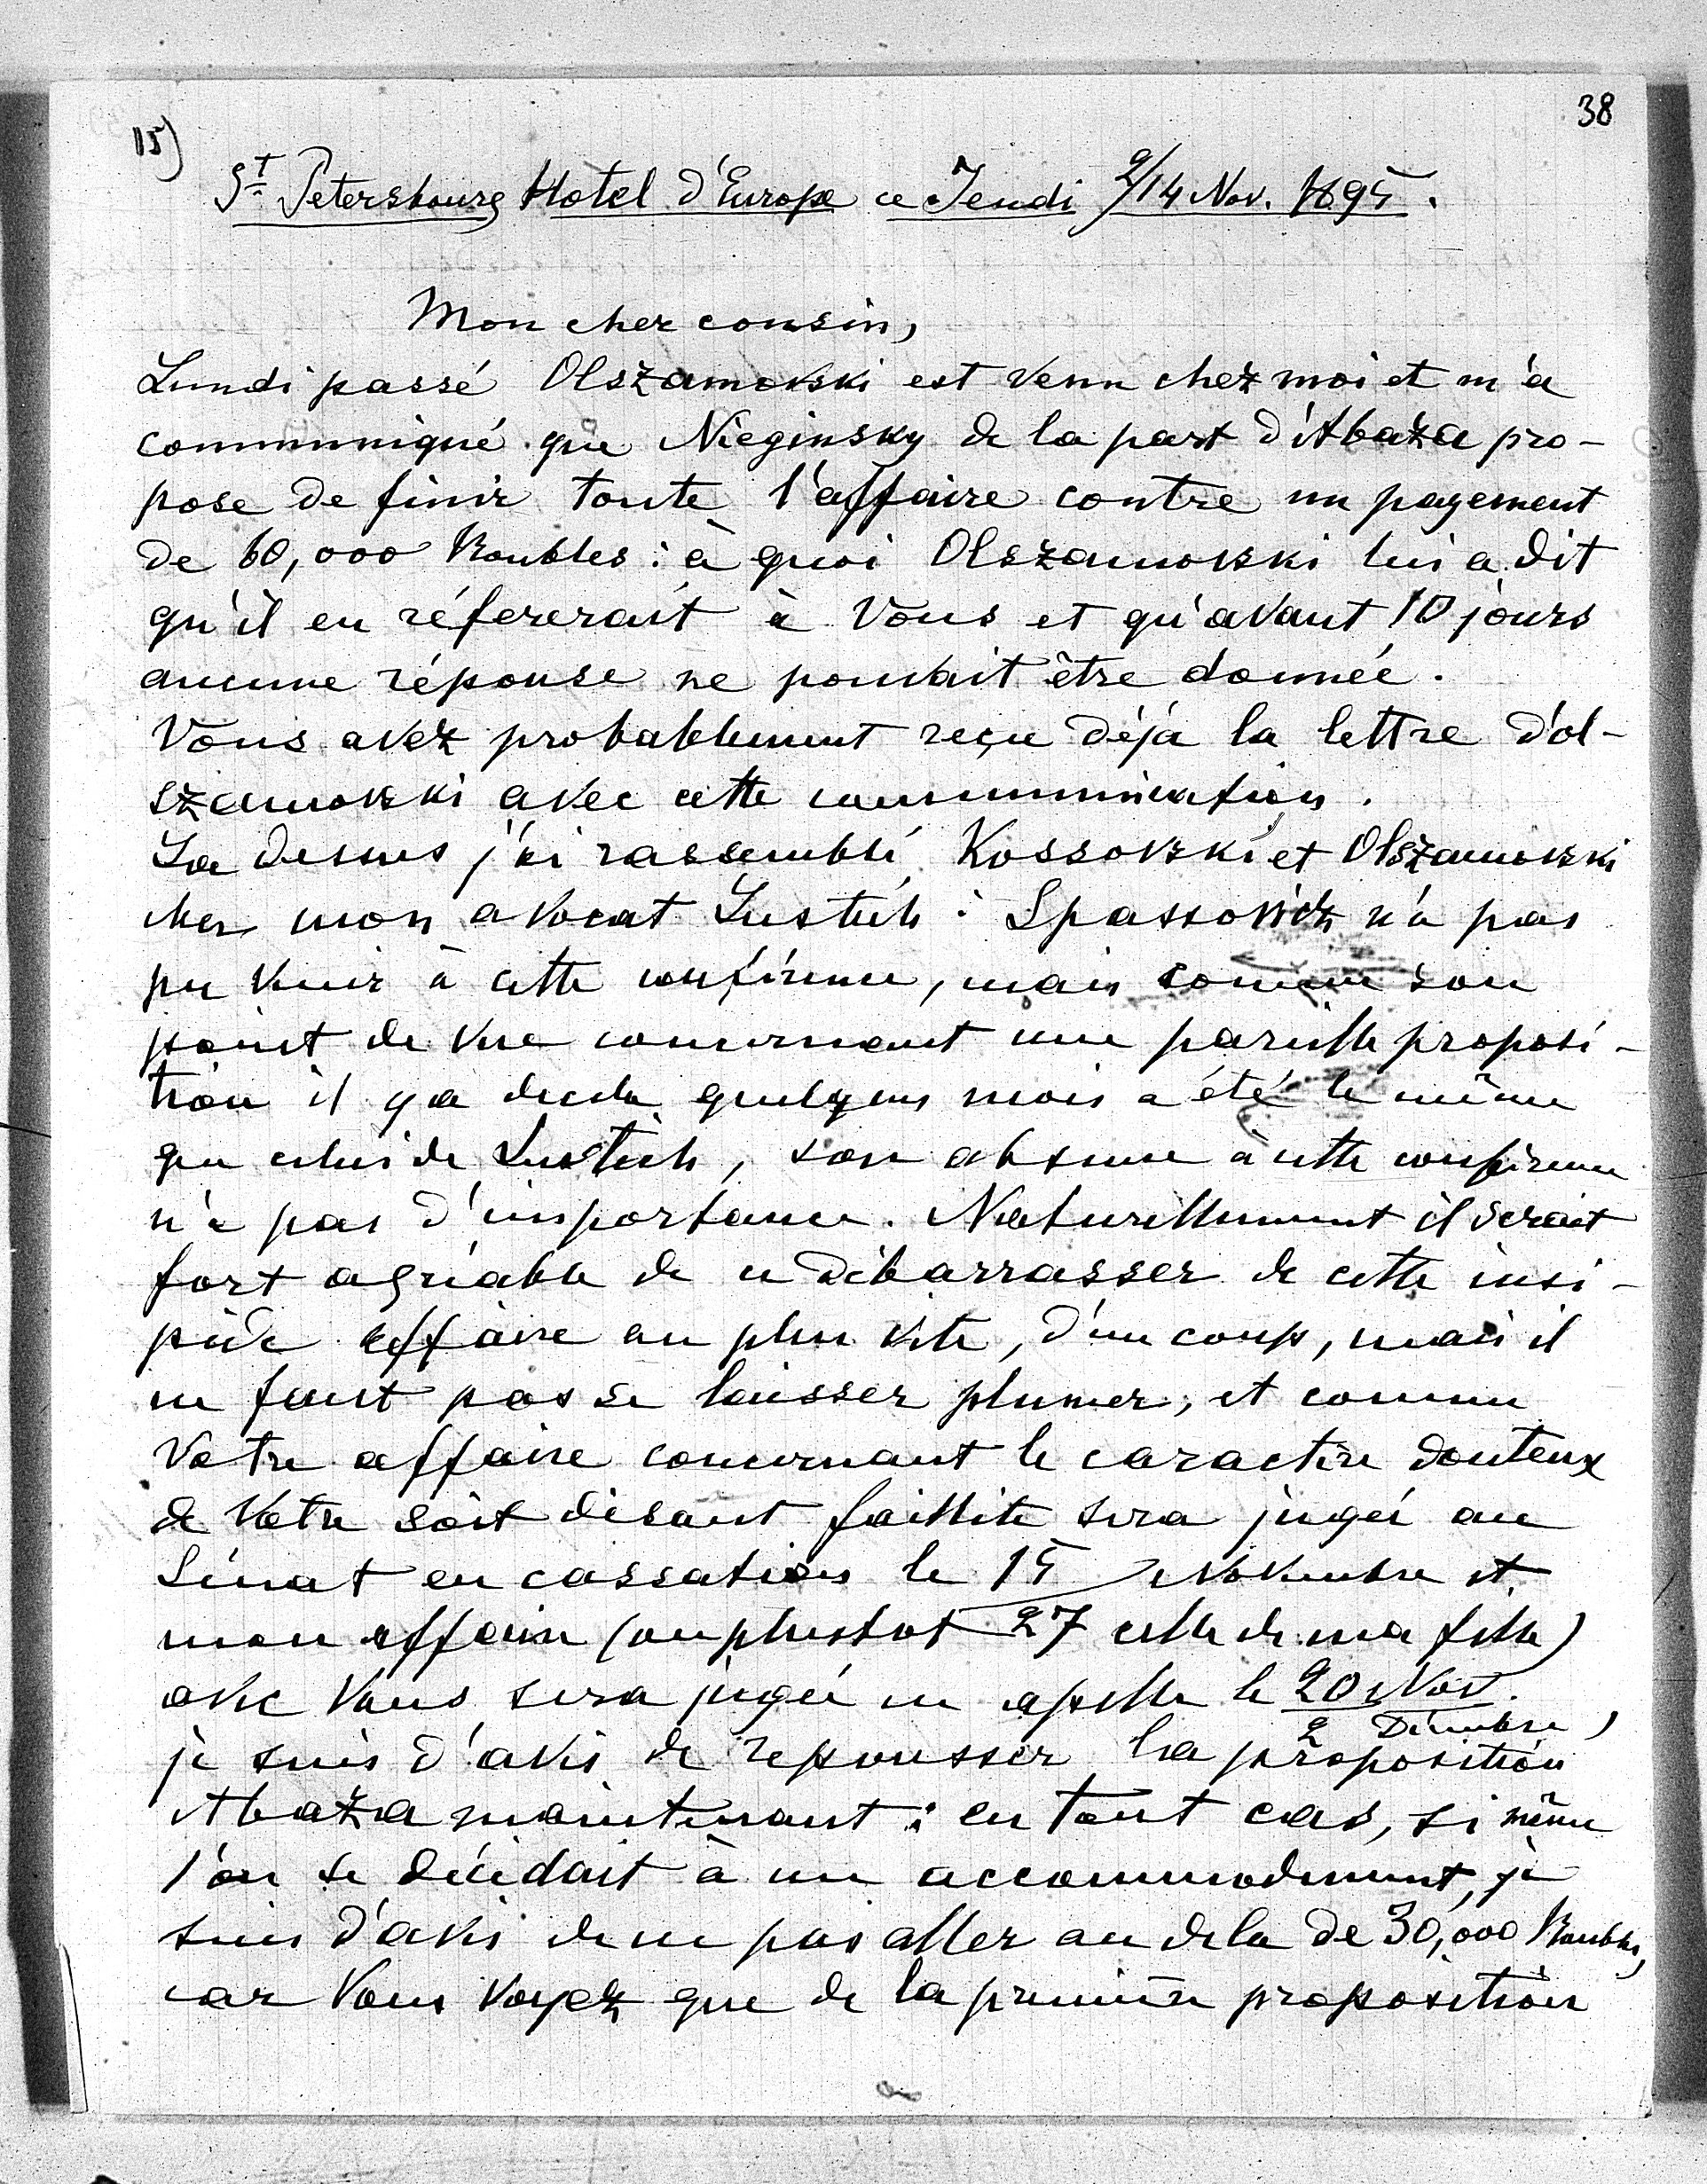 38
15)
St Petersbourg Hotel d'Europe ce Jeudi 2/14 Nov. 1895.
Mon cher cousin,
Lundi passé Olszamowski est venu chez moi et m'a
communiqué que Nieginsky de la part d'Abaza pro-
pose de finir toute l'affaire contre un payement
de 60,000 Roubles: à quoi Olszamowski lui a dit
qu'il en réfererait à Vous et qu'avant 10 jours
aucune réponse ne pouvait être donnée.
Vous avez probablement reçu déjà la lettre d'Ol-
szamowski avec cette communication.
La dessus j'ai rassemblé Kossowski et Olszamowski
chez mon avocat Lustich: Spassowicz n'a pas
pu venir à cette conférence, mais comme son
point de vue concernant une pareille proposi-
tion il y a deda quelques mois a été le même
que celui de Lustich, son absence à cette conférence
n'a pas d'importance. Naturellement il serait
fort agréable de se débarrasser de cette insi-
pide affaire au plus vite, d'un coup, mais il
ne faut pas se laisser plumer, et comme
Votre affaire concernant le caractère douteux
de Votre soit disant faillite sera jugée au
Sénat en cassation le 15 Novembre et
mon affaire (ou plustot 27 celle de ma fille)
avec Vous sera jugée en apelle le 20 Nov.
2 Décembre,
je suis d'avis de repousser la proposition
Abaza maintenant: en tout cas, si même
l'on se décidait à un accommodement, je
suis d'avis de ne pas aller au dela de 30,000 Roubles,
car Vous voyez que de la première proposition